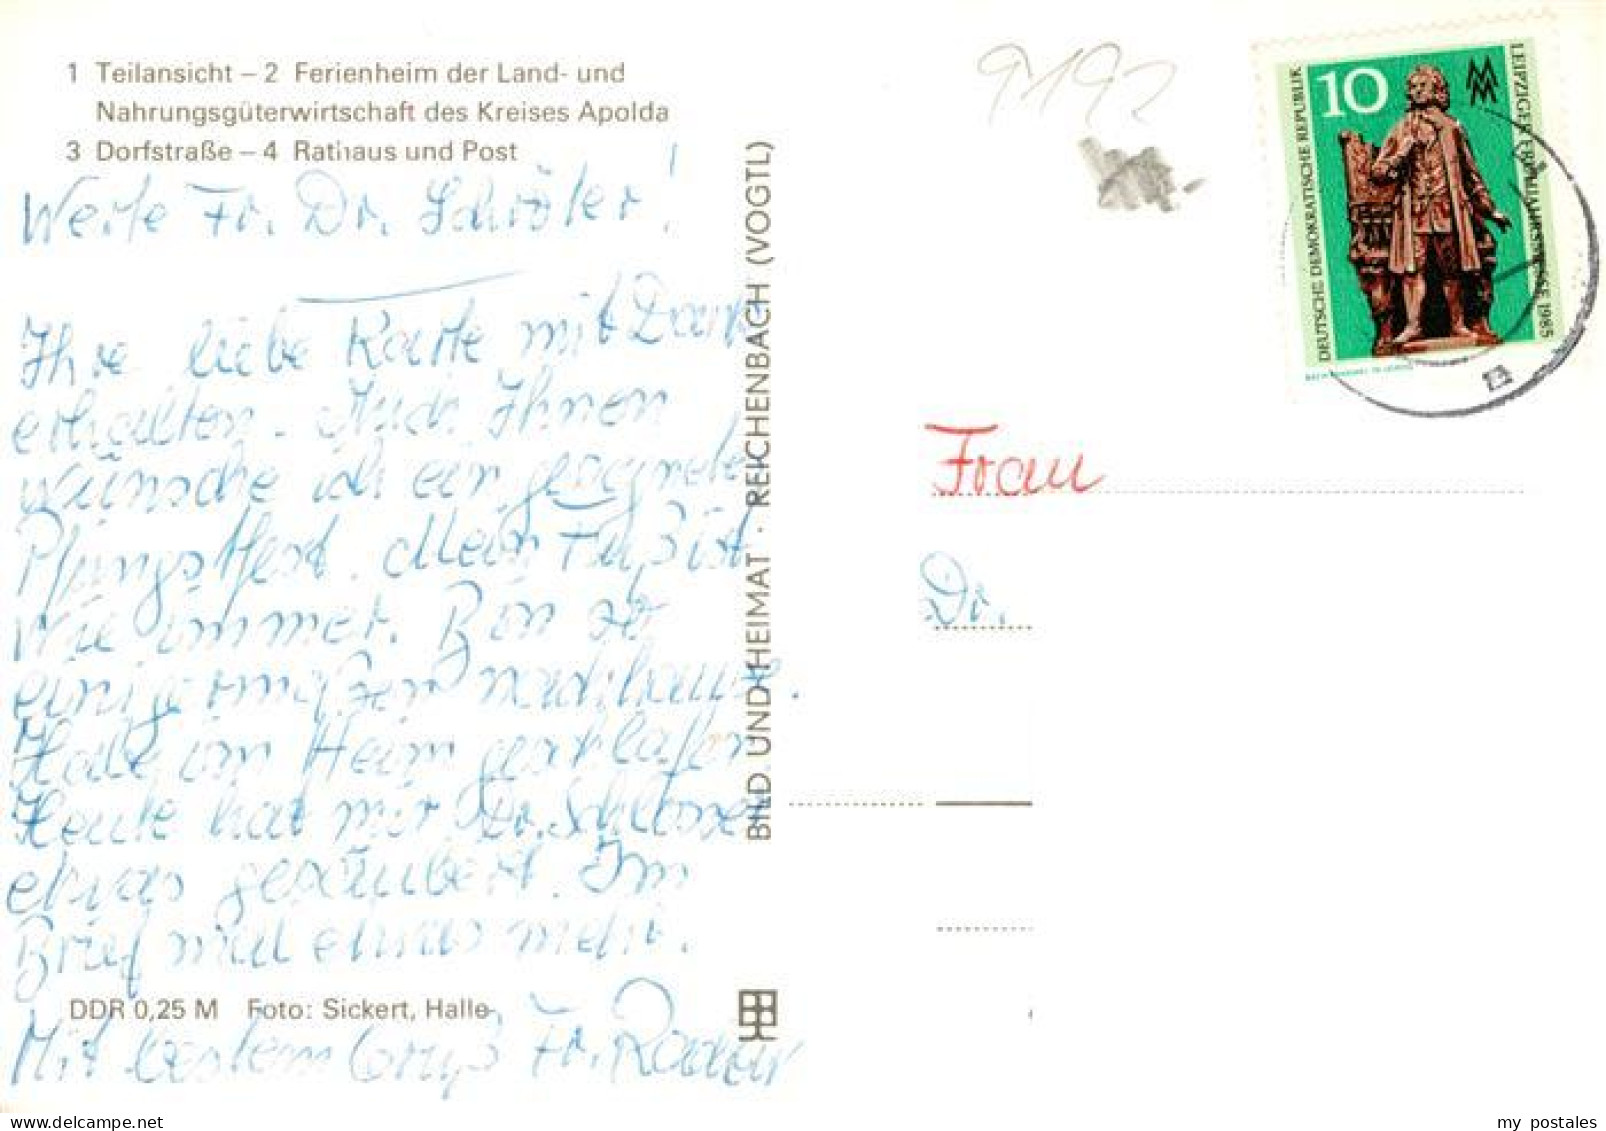 1 Teilansicht – 2 Ferienheim der Land- und
Nahrungsgüterwirtschaft des Kreises Apolda
3 Dorfstraße – 4 Rathaus und Post
Werte Fr. Dr. Schröter!
Ihre liebe Karte mit Dank
erhalten. Auch Ihnen
wünsche ich ein gesegnetes
Pfingstfest. Mein Fuß ist
wie immer. Bin so
einigermaßen
Habe im Heim geschlafen
Heute hat mir Dr.
etwas gesäubert. Im
Brief mal etwas mehr.
DDR 0,25 M Foto: Sickert, Halle
Mit bestem Gruß Fr.
BILD UND HEIMAT · REICHENBACH (VOGTL)
9192
10
DEUTSCHE DEMOKRATISCHE REPUBLIK
LEIPZIGER FRÜHJAHRSMESSE 1985
MM
Frau
Dr.
my postales